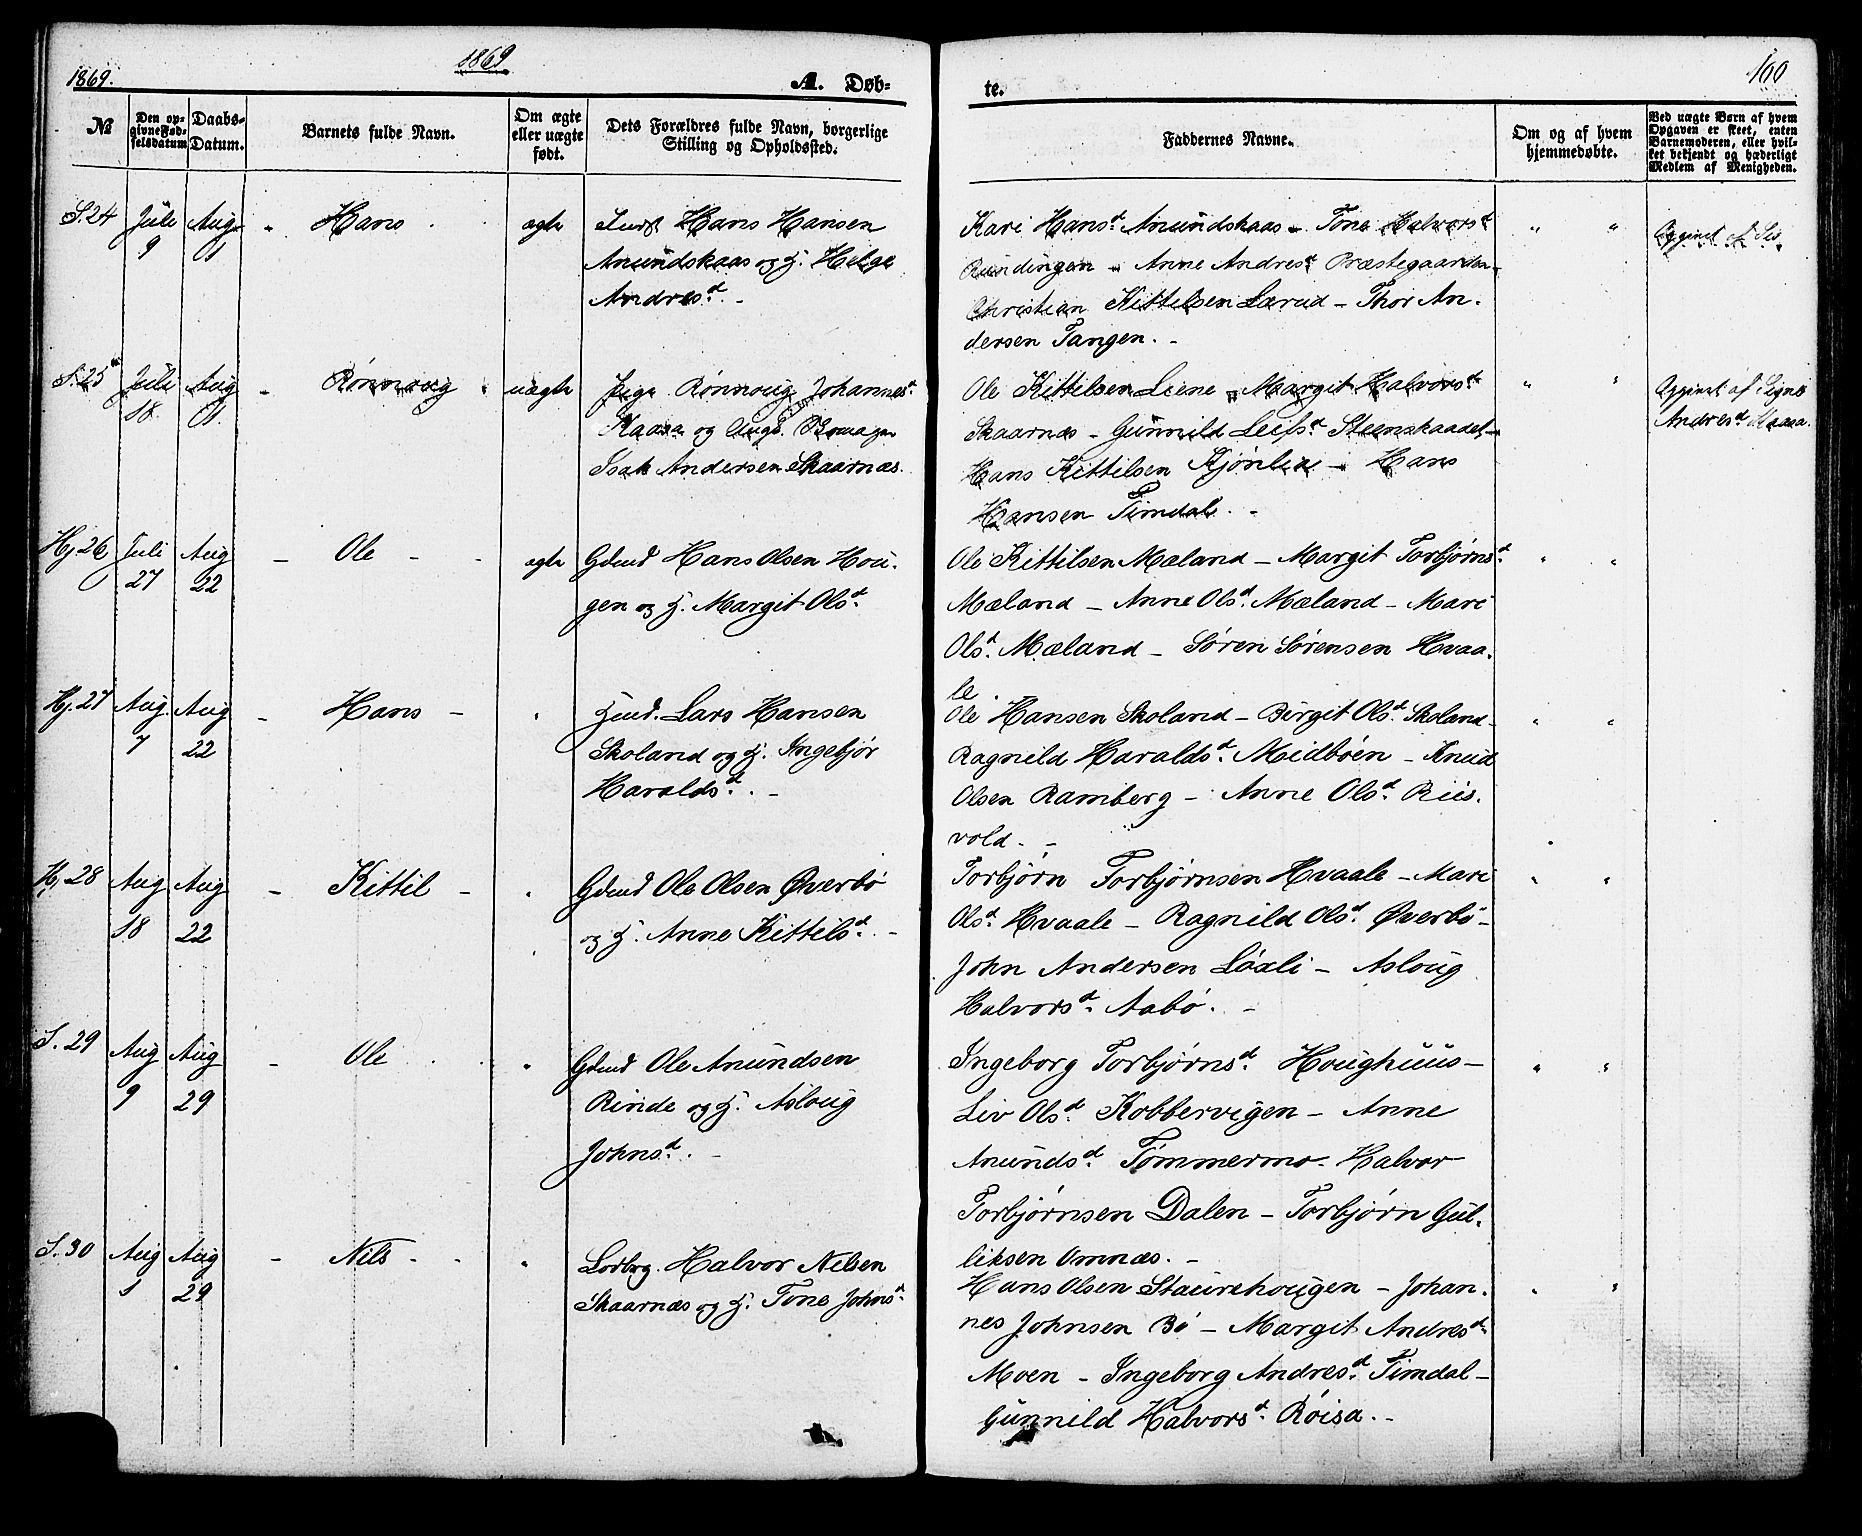 1869.
1869
A. Døb-
te.
100
№
Den op-
givne Fød-
selsdatum
Daabs-
Datum.
Barnets fulde Navn.
Om ægte
eller uægte
født.
Dets Forældres fulde Navn, borgerlige
Stilling og Opholdssted.
Faddernes Navne.
Om og af hvem
hjemmedøbte.
Ved uægte Børn af hvem
Opgaven er skeet, enten
Barnemoderen, eller hvil-
ket bekjendt og hæderligt
Medlem af Menigheden.
S. 24 Juli Aug - Hans ægte Hans Hansen
9 Anundskaas og H. Helge
Andresd. -
Kari Hansd. Anundskaas - Tone Halvorsd
Rundingen - Anne Andresd Præstegaarden -
Christian Kittilsen Lærud - Thor An-
dersen Tangen. -
S. 25 Juli Aug - Rønnoug uægte Pige Rønnoug Johannesd
18 Kaasa og Ungk.
Isak Andersen Skaarnæs.
Ole Kittilsen Liene - Margit Halvorsd
Skaarnæs - Gunnild Leifsd Steenskaadet -
Hans Kittilsen Kjønlia - Hans
Hansen Timdal. -
af Signe
Andresd Kaasa.
Hj. 26 Juli Aug - Ole - - ægte Gdmd Hans Olsen Hou-
27 22 gen og H. Margit Olsd.
Ole Kittilsen Mæland - Margit Torbjørnsd.
Mæland - Anne Olsd. Mæland - Mari
Olsd. Mæland - Søren Sørensen Hvaa-
le.
Hj. 27 Aug. Aug - Hans - " Lars Hansen
7 22 Skoland og H. Ingebjør
Haraldsd. -
Ole Hansen Skoland - Birgit Olsd. Skoland -
Ragnild Haraldsd. Midbøen - Knud
Olsen Ramberg - Anne Olsd. Riis-
vold. -
Hj. 28 Aug Aug - Kittil - " Gdmd Ole Olsen Øverbø
18 22 og H. Anne Kittilsd. -
Torbjørn Torbjørnsen Hvaale - Mari
Olsd. Hvaale - Ragnild Olsd. Øverbø -
John Andersen - Asloug
Halvorsd. Aabø. -
S. 29 Aug Aug - Ole " Gdmd Ole Anundsen
9 29 Rinde og H. Asloug
Johnsd. -
Ingeborg Torbjørnsd. Houghuus -
Liv Olsd. Kobbervigen - Anne
Anundsd. Tømmermo. Halvor
Torbjørnsen Dalen - Torbjørn Gul-
liksen Omnæs. -
S. 30 Aug Aug - Nils - " Halvor Nilsen
1 29 Skaarnæs og H. Tone Johnsd.
Hans Olsen Staurehougen - Johan-
nes Johnsen Bø - Margit Andresd.
Moen - Ingeborg Andresd. Timdal -
Gunnild Halvorsd. Røisa. -